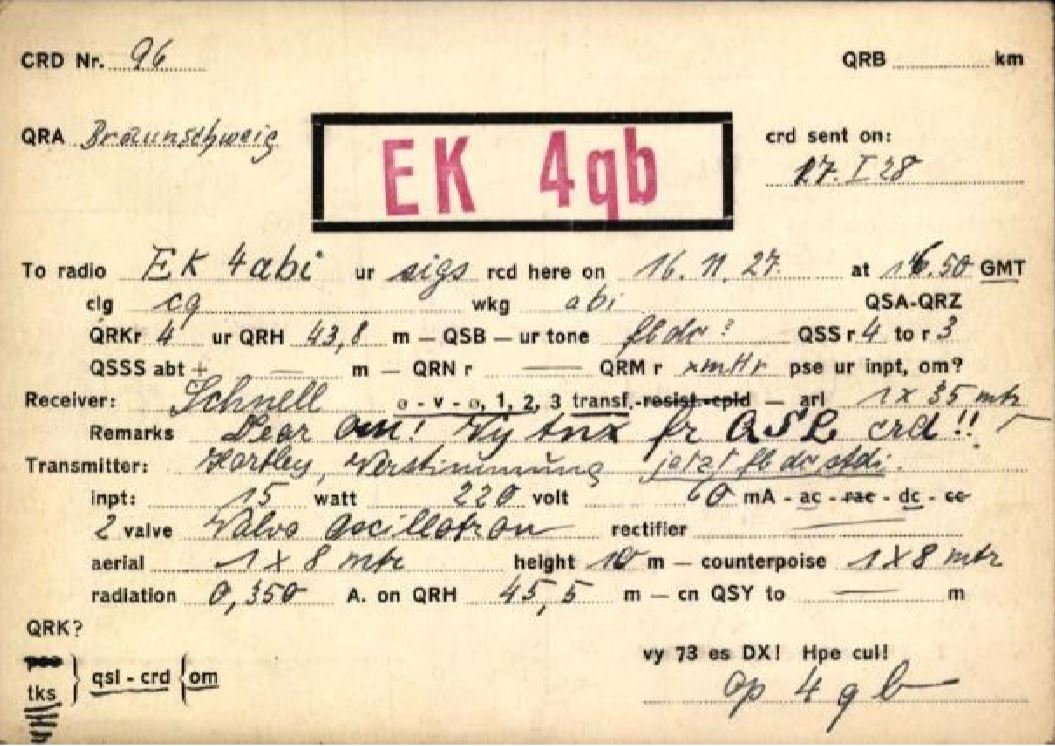 CRD Nr. 96 QRB km
QRA Braunschweig EK 4qb crd sent on:
17. I 28
To radio EK 4abi ur sigs rcd here on 16. 11. 27. at 16.50 GMT
clg cq wkg abi QSA-QRZ
QRKr 4 ur QRH 43,8 m — QSB — ur tone fb dc? QSS r 4 to r 3
QSSS abt + — m — QRN r — QRM r pse ur inpt, om?
Receiver: Schnell o - v - o, 1, 2, 3 transf.-resist.-cpld — arl 1 x 35 mtr
Remarks Dear om! Vy tnx fr QSL crd!!
Transmitter: Hartley, Verstimmung jetzt fb dc stdi.
inpt: 15 watt 220 volt 60 mA - ac - rac - dc - cc
2 valve Valvo Oscillotron rectifier —
aerial 1 x 8 mtr height 10 m — counterpoise 1 x 8 mtr
radiation 0,350 A. on QRH 45,5 m — cn QSY to — m
QRK?
pse
tks } qsl - crd { om
vy 73 es DX! Hpe cul!
op 4qb